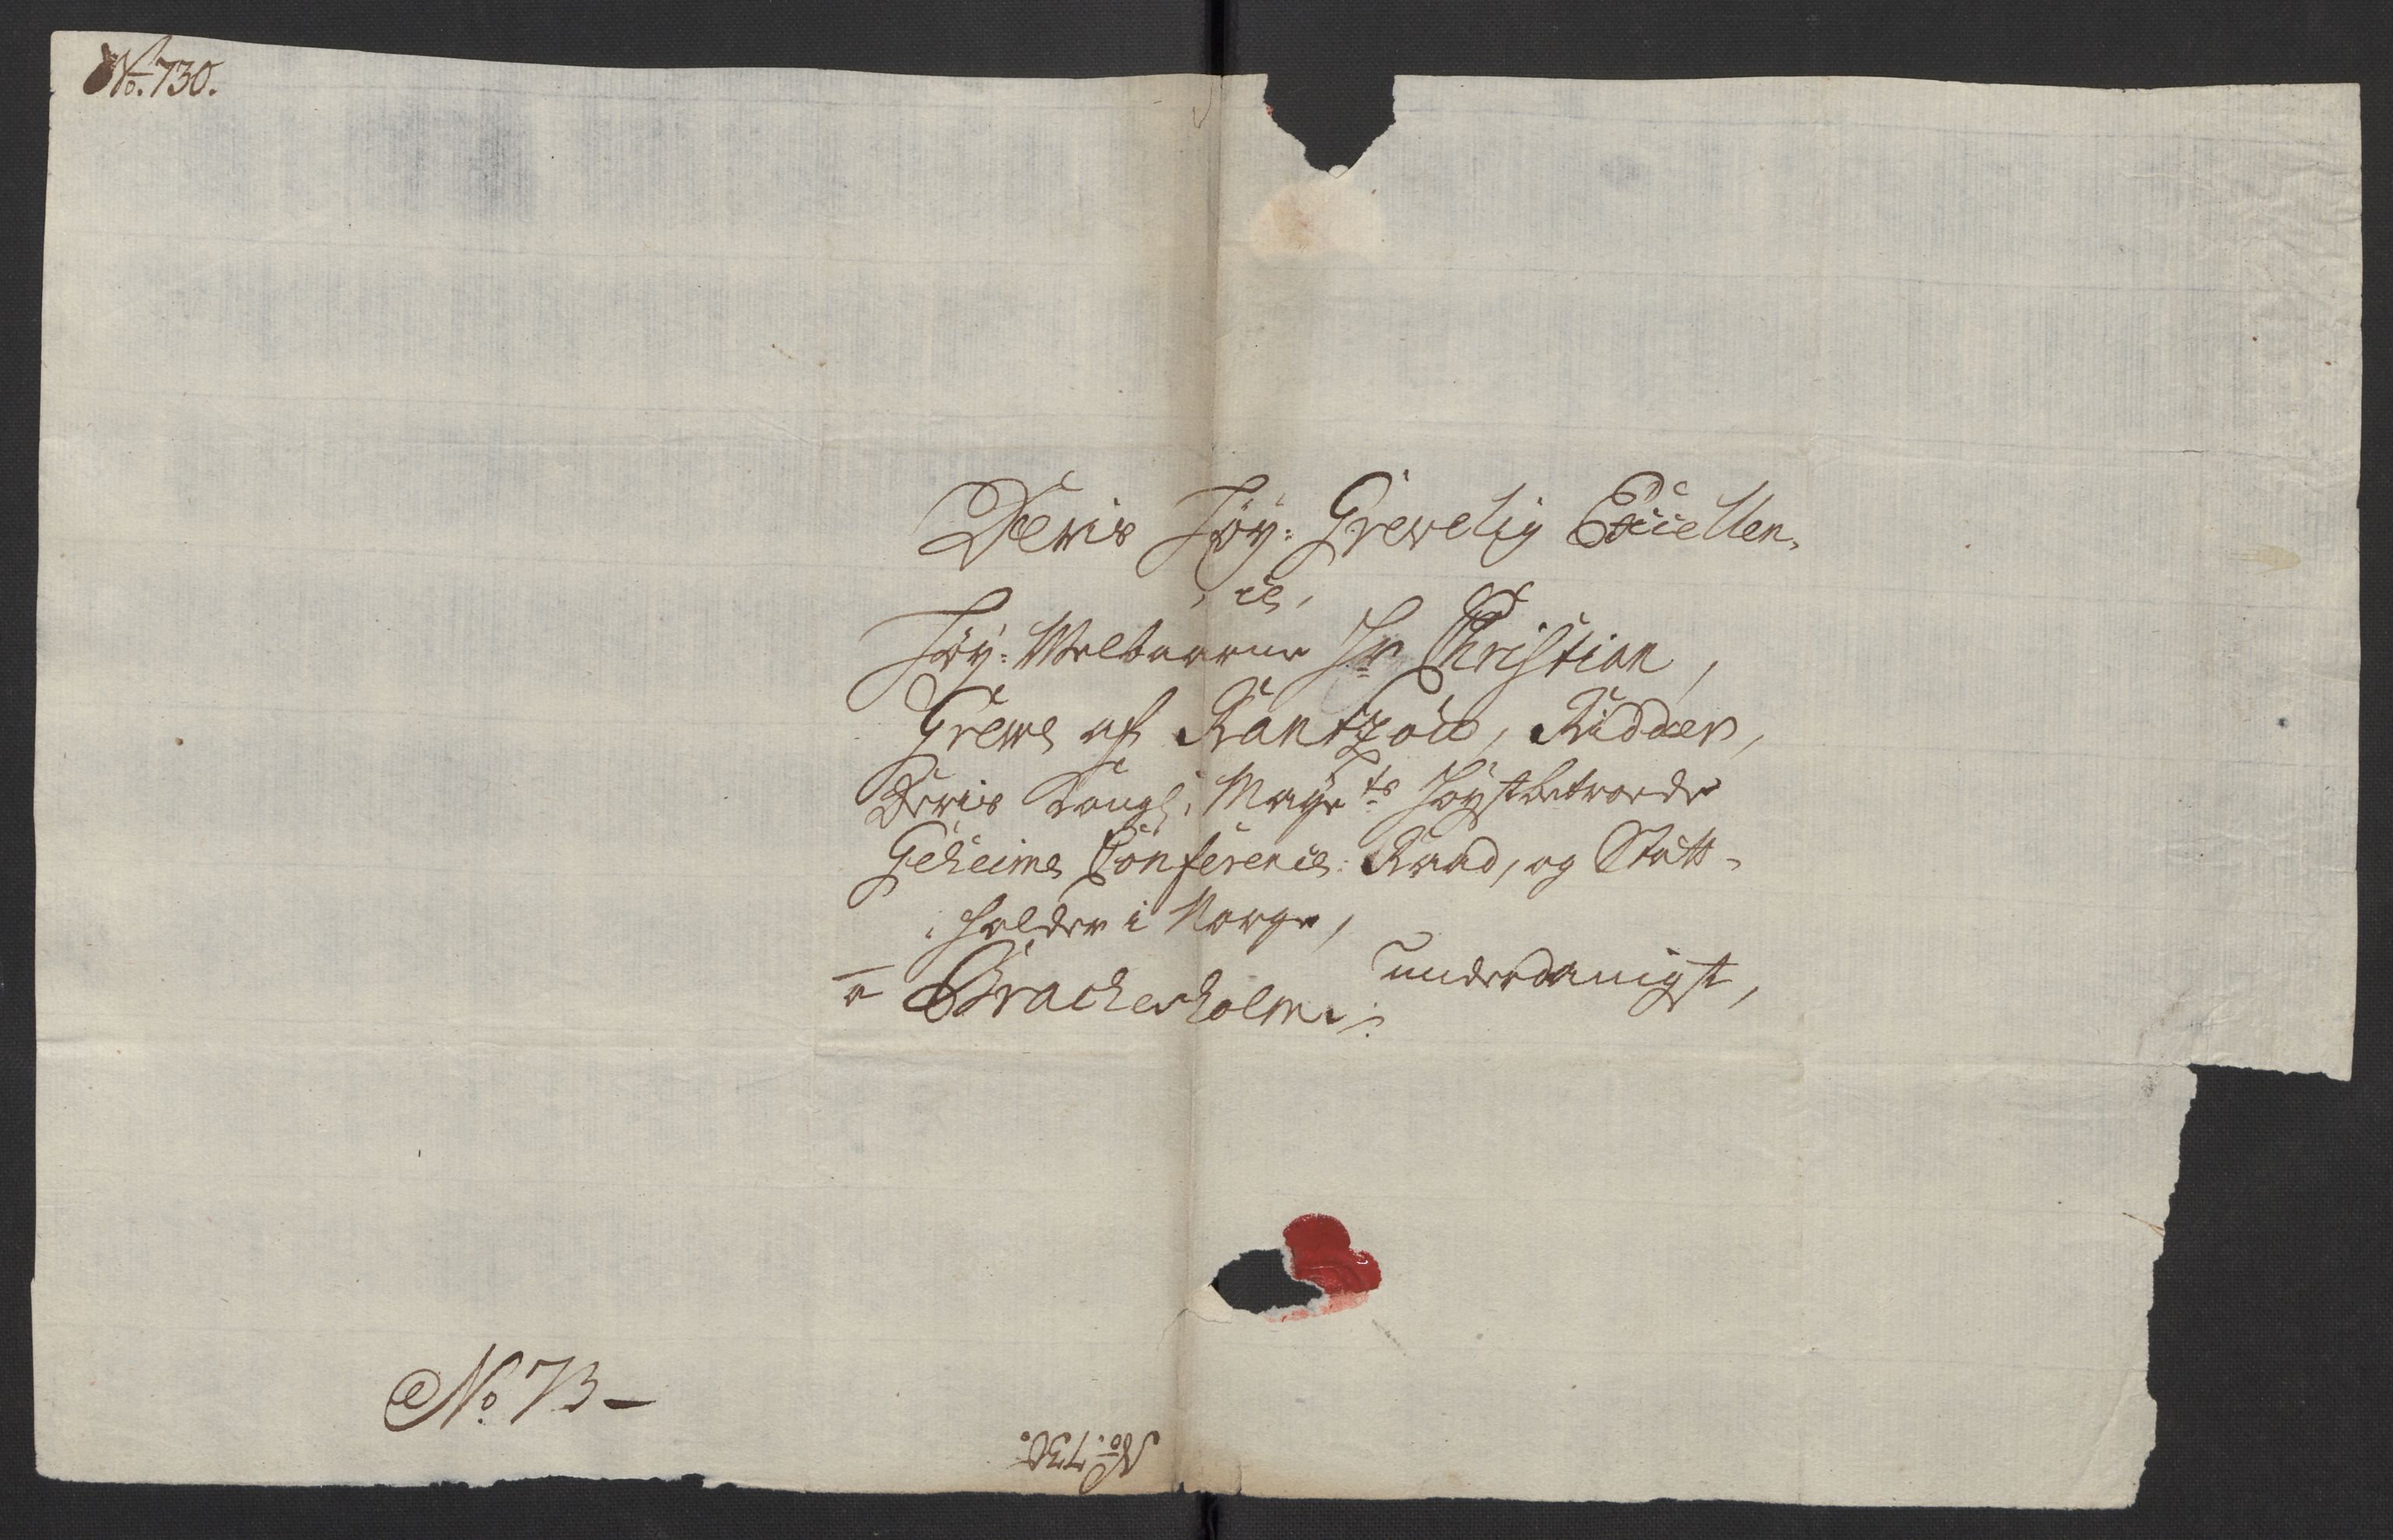 No. 730.
Deris Høy: Grevelig Excellen-
ce,
Høy: Welbaarne Hr Christian,
Grewe af Rantzou, Ridder,
Deris Kongl: Mayts Høystbetroede
Geheime Conference: Raad, og Statt-
holder i Norge,
underdanigst,
a Brachesholm
No 73 -
No. 730.